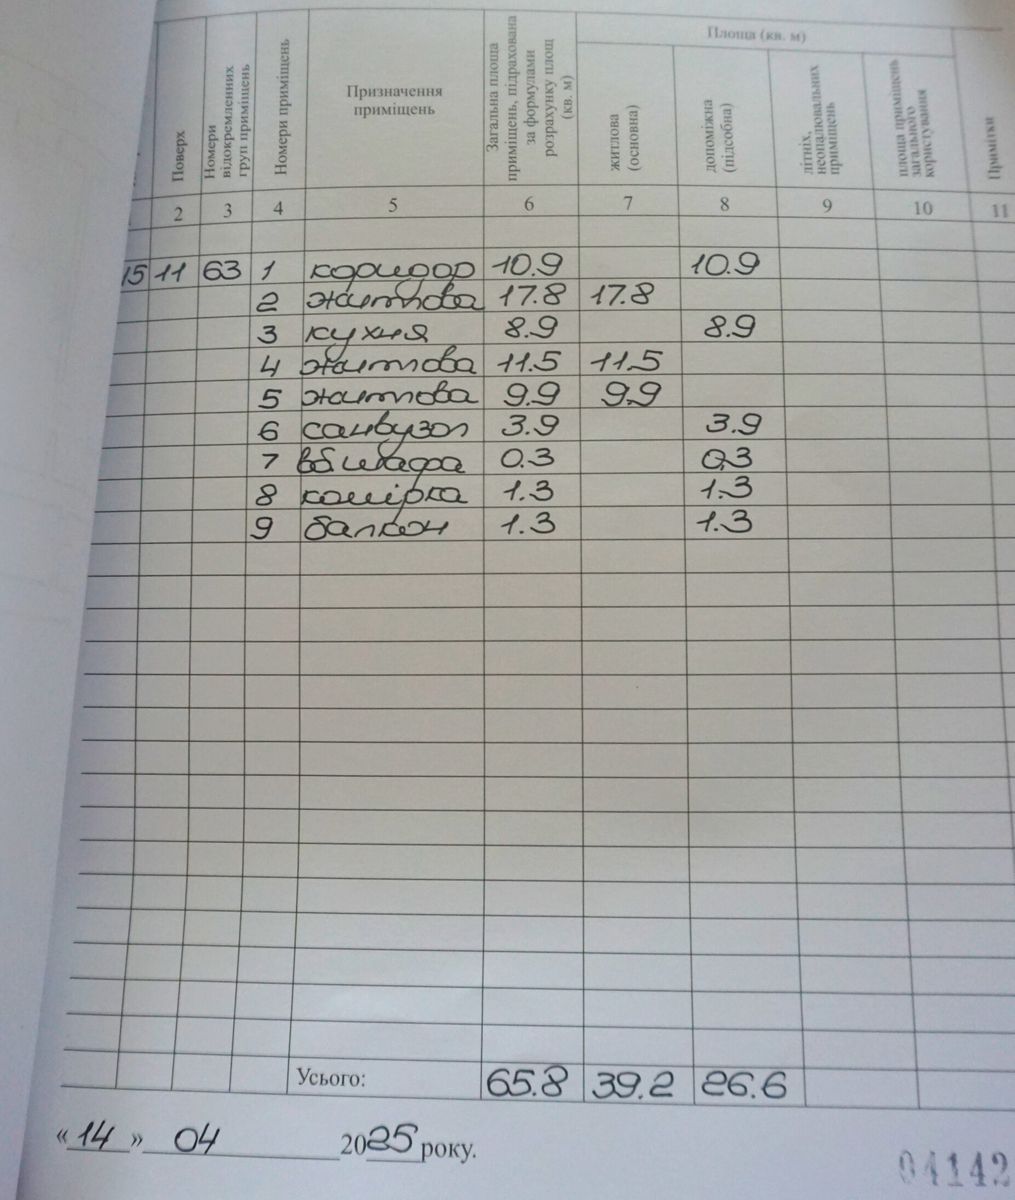 Площа (кв. м)
Поверх
Номери відокремленних груп приміщень
Номери приміщень
Призначення приміщень
Загальна площа приміщень, підрахована за формулами розрахунку площ (кв. м)
житлова (основна)
допоміжна (підсобна)
літніх, неопалювальних приміщень
площа приміщень загального користування
Примітки
2 3 4 5 6 7 8 9 10 11
15 11 63 1 коридор 10.9 10.9
2 житлова 17.8 17.8
3 кухня 8.9 8.9
4 житлова 11.5 11.5
5 житлова 9.9 9.9
6 санвузол 3.9 3.9
7 вб шафа 0.3 0.3
8 комірка 1.3 1.3
9 балкон 1.3 1.3
Усього: 65.8 39.2 26.6
«14» 04 2025 року.
04142